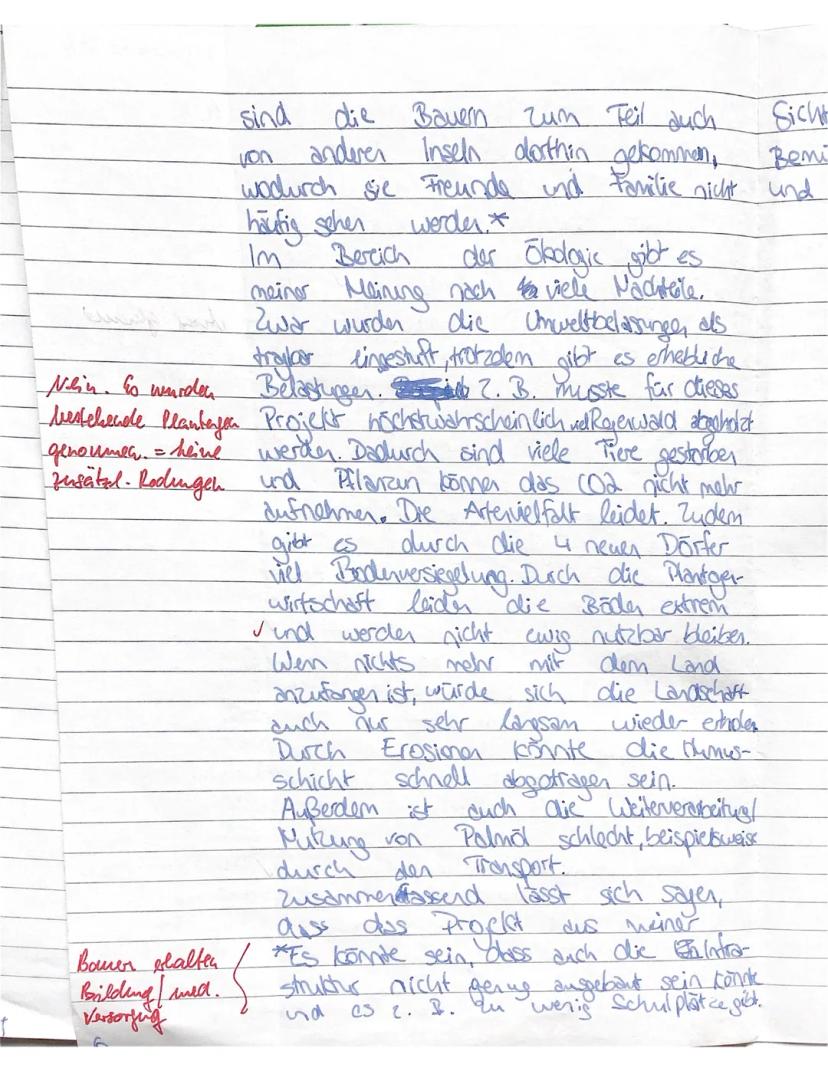 sind die Bauern zum Teil auch
von anderen Inseln dorthin gekommen,
wodurch sie Freunde und Familie nicht
häufig sehen werden.*
Im Bereich der Ökologie gibt es
meiner Meinung nach viele Nachteile.
Zwar wurden die Umweltbelassungen als
tragbar eingestuft, trotzdem gibt es erhebliche
Belastungen. Z. B. musste für dieses
Projekt höchstwahrscheinlich viel Regenwald abgeholzt
werden. Dadurch sind viele Tiere gestorben
und Pflanzen können das CO2 nicht mehr
aufnehmen. Die Artenvielfalt leidet. Zudem
gibt es durch die 4 neuen Dörfer
viel Bodenversiegelung. Durch die Plantagen-
wirtschaft leiden die Böden extrem
✓ und werden nicht ewig nutzbar bleiben.
Wenn nichts mehr mit dem Land
anzufangen ist, würde sich die Landschaft
auch nur sehr langsam wieder erholen.
Durch Erosionen könnte die Humus-
schicht schnell abgetragen sein.
Außerdem ist auch die Weiterverarbeitung/
Nutzung von Palmöl schlecht, beispielsweise
durch den Transport.
Zusammenfassend lässt sich sagen,
dass das Projekt aus meiner
*Es könnte sein, dass auch die Infra-
struktur nicht genug ausgebaut sein könnte
und es z. B. zu wenig Schulplätze gibt.
Nein. Es wurden
bestehende Plantagen
genommen. = keine
zusätzl. Rodungen
Bauern erhalten
Bildung/med.
Versorgung
Sicht
Bemü
und